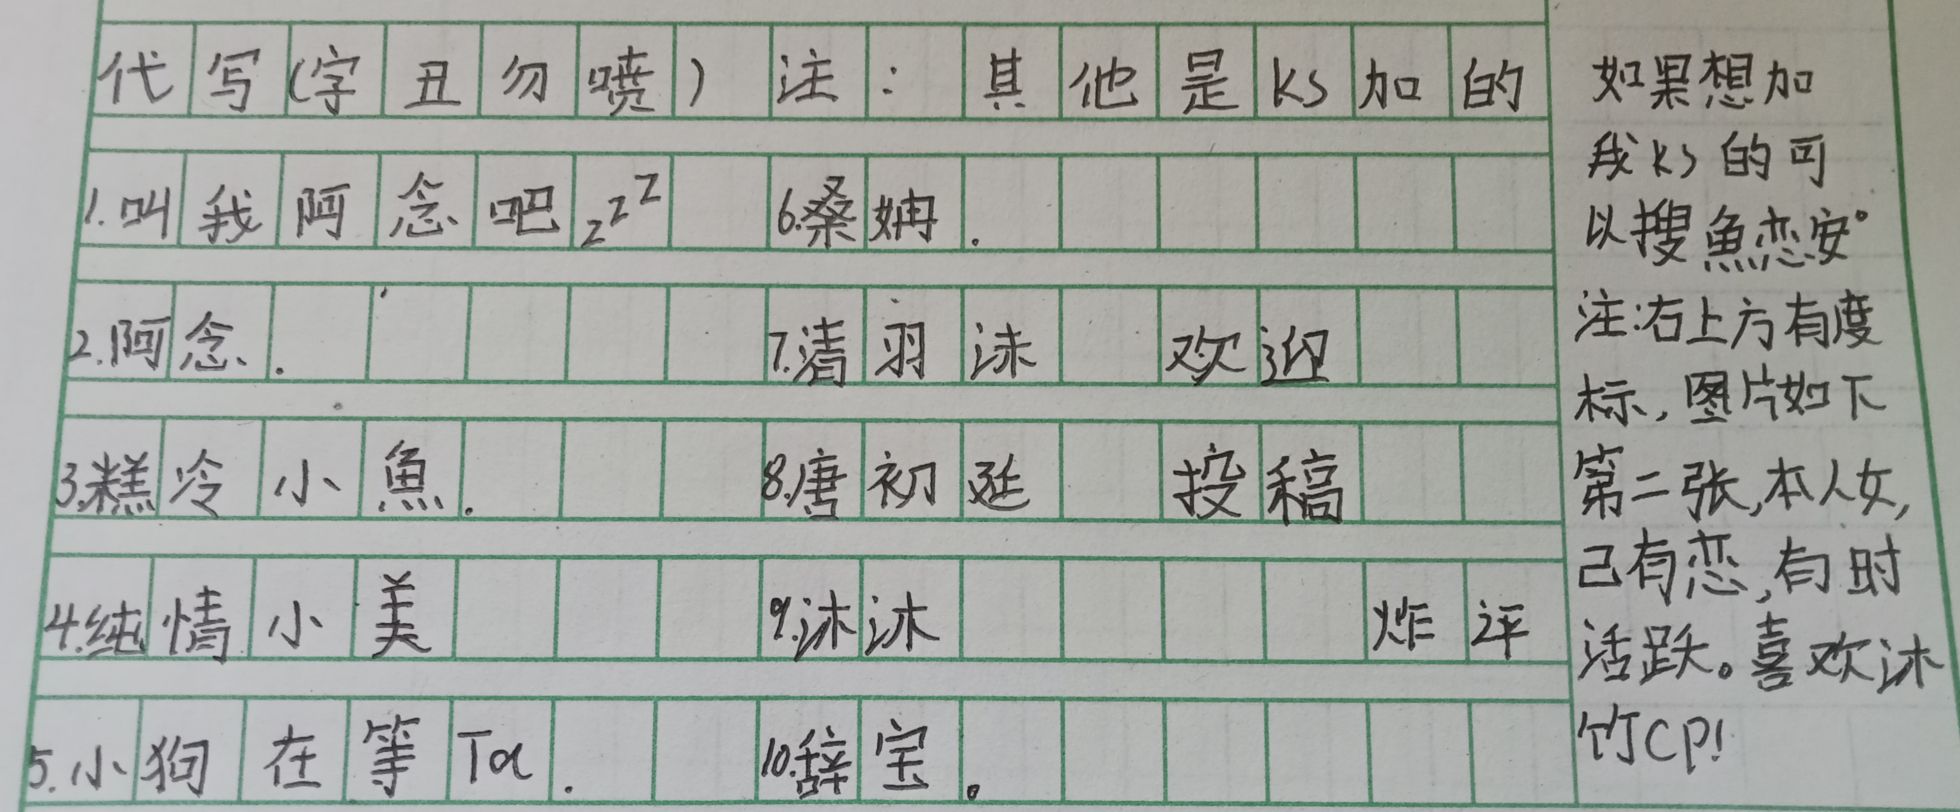 代写(字丑勿喷) 注: 其他是KS加的
1.叫我阿念吧zzZ
2.阿念.
3.糕冷小魚.
4.纯情小美
5.小狗在等Ta.
6.桑姌.
7.清羽沐 欢迎
8.唐初廷 投稿
9.沐沐 炸评
10.辞宝。
如果想加
我KS的可
以搜魚恋安°
注:右上方有度
标,图片如下
第二张,本人女,
己有恋,有时
活跃。喜欢沐
竹CP!